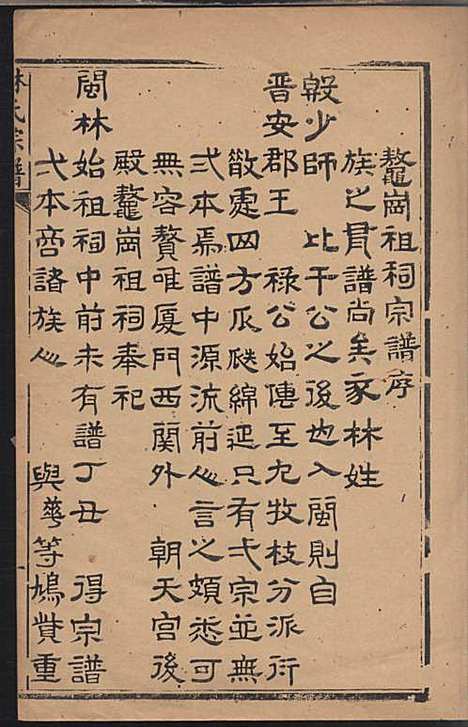 鼇崗祖祠宗譜序
族之有譜尚矣家林姓
殷少師 比干公之後也入閩則自
晋安郡王 祿公始傳至九牧枝分派衍
散處四方瓜瓞綿延只有弌宗並無
弍本焉譜中源流前人言之頗悉可
無容贅唯厦門西関外 朝天宮後
殿鼇崗祖祠奉祀
閩林始祖祠中前未有譜丁丑 得宗譜
弍本啇諸族人 與華等鳩貲重
林氏宗譜